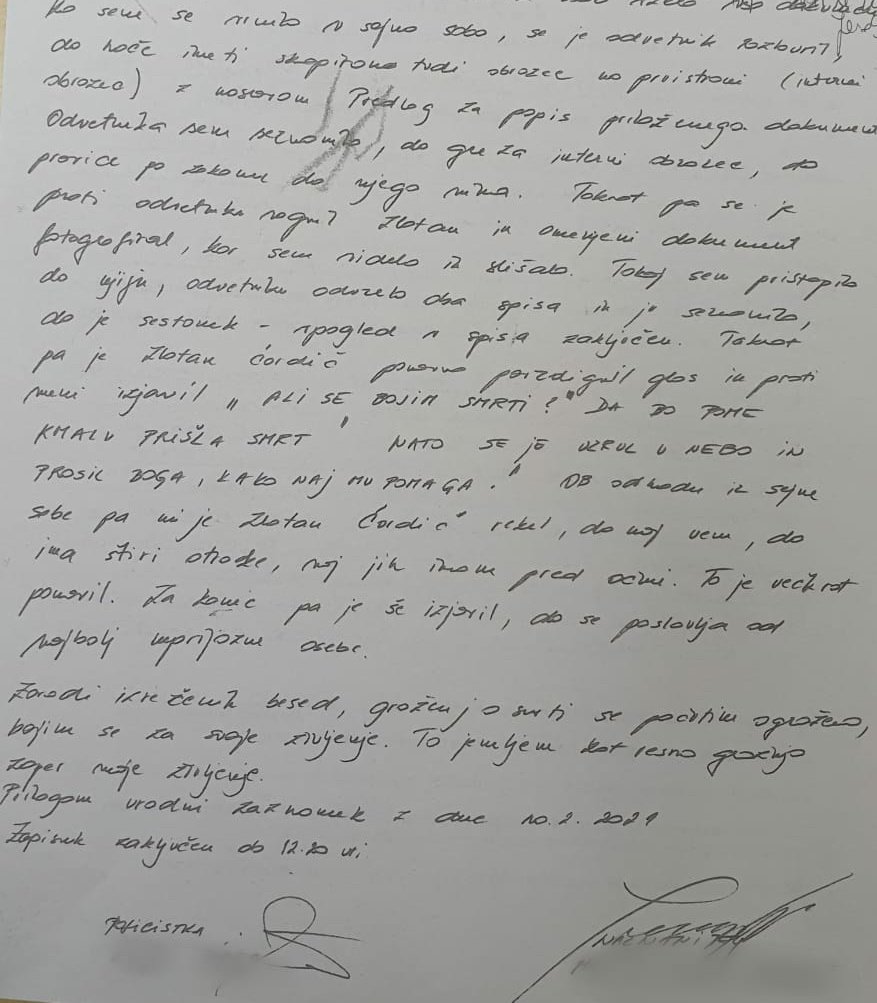 Ko sem se vrnila v sejno sobo, se je odvetnik razburil,
da hoče imeti skopirano tudi obrazec na prvi strani (interni
obrazec) z naslovom Predlog za popis priloženega dokumen
Odvetnika sem seznanila, da gre za interni obrazec, da
pravice po zakonu do njega nima. Takrat pa se je
proti odvetniku nagnil Zlatan in omenjeni dokument
fotografiral, kar sem videla in slišala. Takoj sem pristopila
do njiju, odvetniku odvzela oba spisa in ju seznanila,
da je sestanek - vpogled v spisa zaključen. Takrat
pa je Zlatan Ćordić ponovno povzdignil glas in proti
meni izjavil " ALI SE BOJIM SMRTI?" DA BO POME
KMALU PRIŠLA SMRT " NATO SE JE UZRUL V NEBO IN
PROSIL BOGA, KAKO NAJ MU POMAGA." OB odhodu iz sejne
sobe pa mi je Zlatan Ćordić rekel, da naj vem, da
ima štiri otroke, naj jih imam pred očmi. To je večkrat
ponovil. Za konec pa je še izjavil, da se poslavlja od
najbolj neprijazne osebe.
Zaradi izrečenih besed, groženj o smrti se počutim ogroženo,
bojim se za svoje življenje. To jemljem kot resno grožnjo
zoper moje življenje.
Prilagam uradni zaznamek z dne 10.2.2021
Zapisnik zaključen ob 12.20 uri
POLICISTKA :
NAZNANITELJ